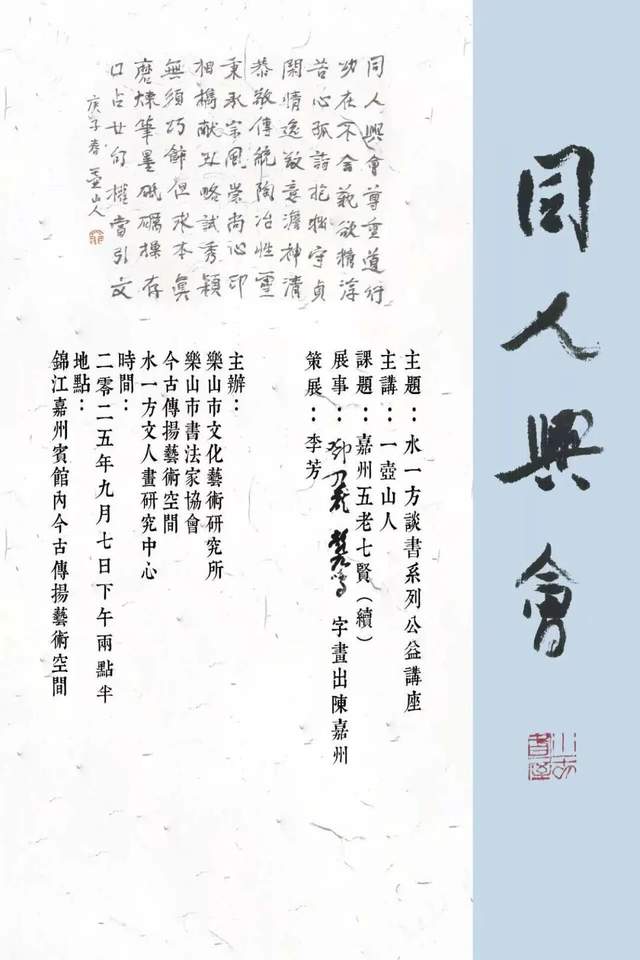 同人興會
同人興會尊重道行
功在不舍藐欲積淳
苦心孤詣抱樸守貞
閑情逸致意澹神清
恭敬傳統陶冶性靈
秉承宗風崇尚心印
相攜献丑略試秀穎
無須巧飾但求本真
磨煉筆墨砥礪操存
口占廿句權當引文
庚子春壺山人
主題：水一方談書系列公益講座
主講：一壺山人
課題：嘉州五老七賢（續）
展事：字畫出陳嘉州
策展：李芳
主辦：
樂山市文化藝術研究所
樂山市書法家協會
今古傳揚藝術空間
水一方文人畫研究中心
時間：
二零二五年九月七日下午兩點半
地點：
錦江嘉州賓館內今古傳揚藝術空間